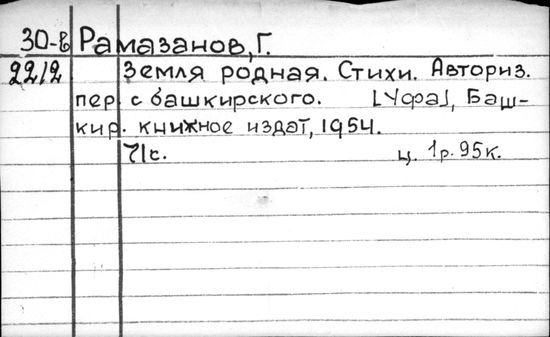 30-8 Рамазанов, Г.
2212 Земля родная. Стихи. Авториз.
пер с башкирского. [Уфа], Баш-
кир. книжное издат, 1954.
71с. ц. 1р. 95к.